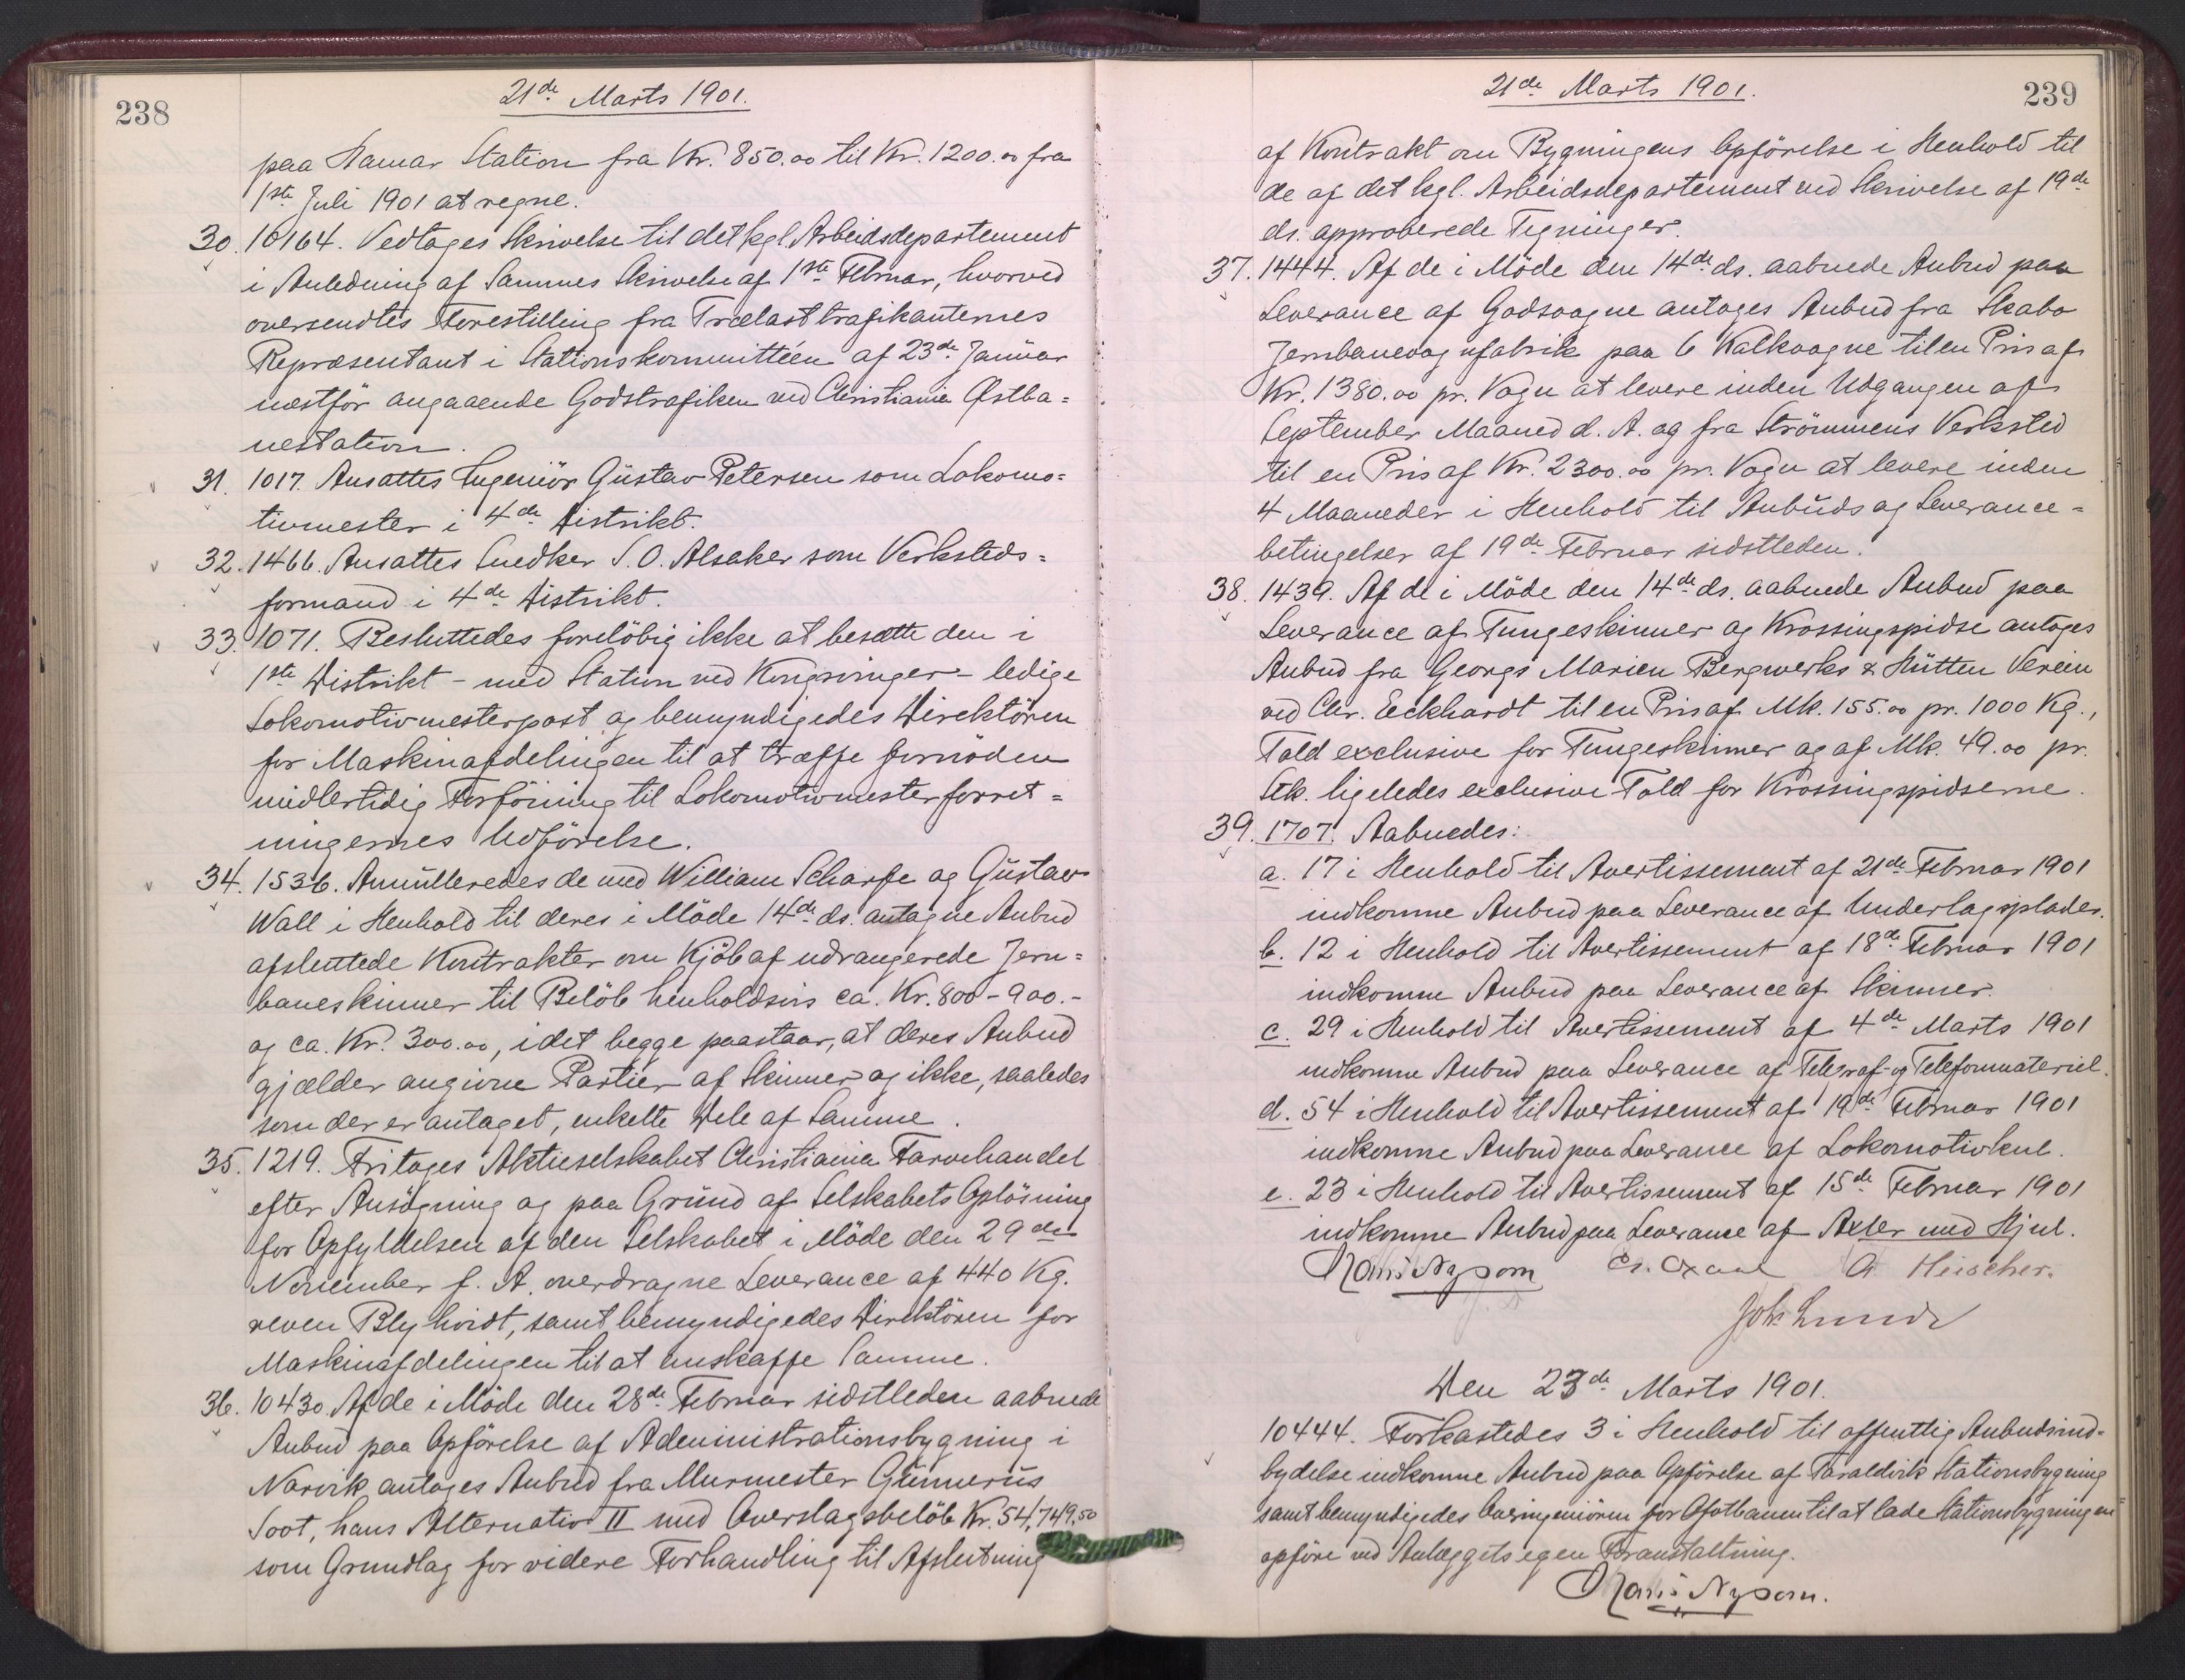 238
21de Marts 1901.
paa Hamar Station fra Kr. 850.00 til Kr. 1200.00 fra
1ste Juli 1901 at regne.
30. 10164. Vedtages Skrivelse til det kgl. Arbeidsdepartement
i Anledning af Sammes Skrivelse af 1ste Februar, hvorved
oversendtes Forestilling fra Trælasttrafikanternes
Repræsentant i Stationskommittéen af 23de Januar
næstfør angaaende Godstrafiken ved Christiania Østba=
nestation.
31. 1017. Ansattes Ingeniör Gustav Petersen som Lokomo=
tivmester i 4de Distrikt.
32. 1466. Ansattes Snedker S. O. Alsaker som Verksteds=
formand i 4de Distrikt.
33. 1071. Besluttedes forelöbig ikke at besætte den i
1ste Distrikt - med Station ved Kongsvinger - ledige
Lokomotivmesterpost og bemyndigedes Direktören
for Maskinafdelingen til at træffe fornöden
midlertidig Forföining til Lokomotivmesterforret=
ningernes Udförelse.
34. 1536. Annulleredes de med William Scharffe og Gustav
Wall i Henhold til deres i Möde 14de ds. antagne Anbud
afsluttede Kontrakter om Kjöb af udrangerede Jern=
baneskinner til Belöb henholdsvis ca. Kr. 800-900.-
og ca. Kr. 300.00, idet begge paastaar, at deres Anbud
gjælder angivne Partier af Skinner og ikke, saaledes
som der er antaget, enkelte Dele af Samme.
35. 1219. Fritages Aktieselskabet Christiania Farvehandel
efter Ansögning og paa Grund af Selskabets Oplösning
for Opfyldelsen af den Selskabet i Möde den 29de
November f. A. overdragne Leverance af 440 Kg.
reven Blyhvidt, samt bemyndigedes Direktören for
Maskinafdelingen til at anskaffe Samme.
36. 10430. Af de i Möde den 28de Februar sidstleden aabnede
Anbud paa Opförelse af Administrationsbygning i
Narvik antages Anbud fra Murmester Gunnerius
Soot, hans Alternativ II med Overslagsbelöb Kr. 54,749,50
som Grundlag for videre Forhandling til Afslutning
239
21de Marts 1901.
af Kontrakt om Bygningens Opförelse i Henhold til
de af det kgl. Arbeidsdepartement ved Skrivelse af 19de
ds. approberede Tegninger.
37. 1444. Af de i Möde den 14de ds. aabnede Anbud paa
Leverance af Godsvogne antages Anbud fra Skabo
Jernbanevognfabrik paa 6 Kalkvogne til en Pris af
Kr. 1380.00 pr. Vogn at levere inden Udgangen af
September Maaned d. A. og fra Strömmens Verksted
til en Pris af Kr. 2300.00 pr. Vogn at levere inden
4 Maaneder i Henhold til Anbuds og Leverance=
betingelser af 19de Februar sidstleden.
38. 1439. Af de i Möde den 14de ds. aabnede Anbud paa
Leverance af Tungeskinner og Krossingspidse antages
Anbud fra Georgs Marien Bergwerks & Hütten Verein
ved Chr. Eckhardt til en Pris af Mk. 155.00 pr. 1000 Kg.,
Told exclusive for Tungeskinner og af Mk. 49.00 pr.
Stk. ligeledes exclusive Told for Krossingspidserne.
39. 1707. Aabnedes:
a. 17 i Henhold til Avertissement af 21de Februar 1901
indkomne Anbud paa Leverance af Underlagsplader.
b. 12 i Henhold til Avertissement af 18de Februar 1901
indkomne Anbud paa Leverance af Skinner.
c. 29 i Henhold til Avertissement af 4de Marts 1901
indkomne Anbud paa Leverance af Telegraf- og Telefonmateriel.
d. 54 i Henhold til Avertissement af 19de Februar 1901
indkomne Anbud paa Leverance af Lokomotivkul.
e. 23 i Henhold til Avertissement af 15de Februar 1901
indkomne Anbud paa Leverance af Axler med Hjul.
Hans Nysom A. Fleischer.
Joh. Lunde
Den 23de Marts 1901.
10444. Forkastedes 3 i Henhold til offentlig Anbudsind=
bydelse indkomne Anbud paa Opförelse af Taraldvik Stationsbygning
samt bemyndigedes Overingeniören for Ofotbanen til at lade Stationsbygningen
opföre ved Anlæggets egen Foranstaltning.
Hans Nysom.